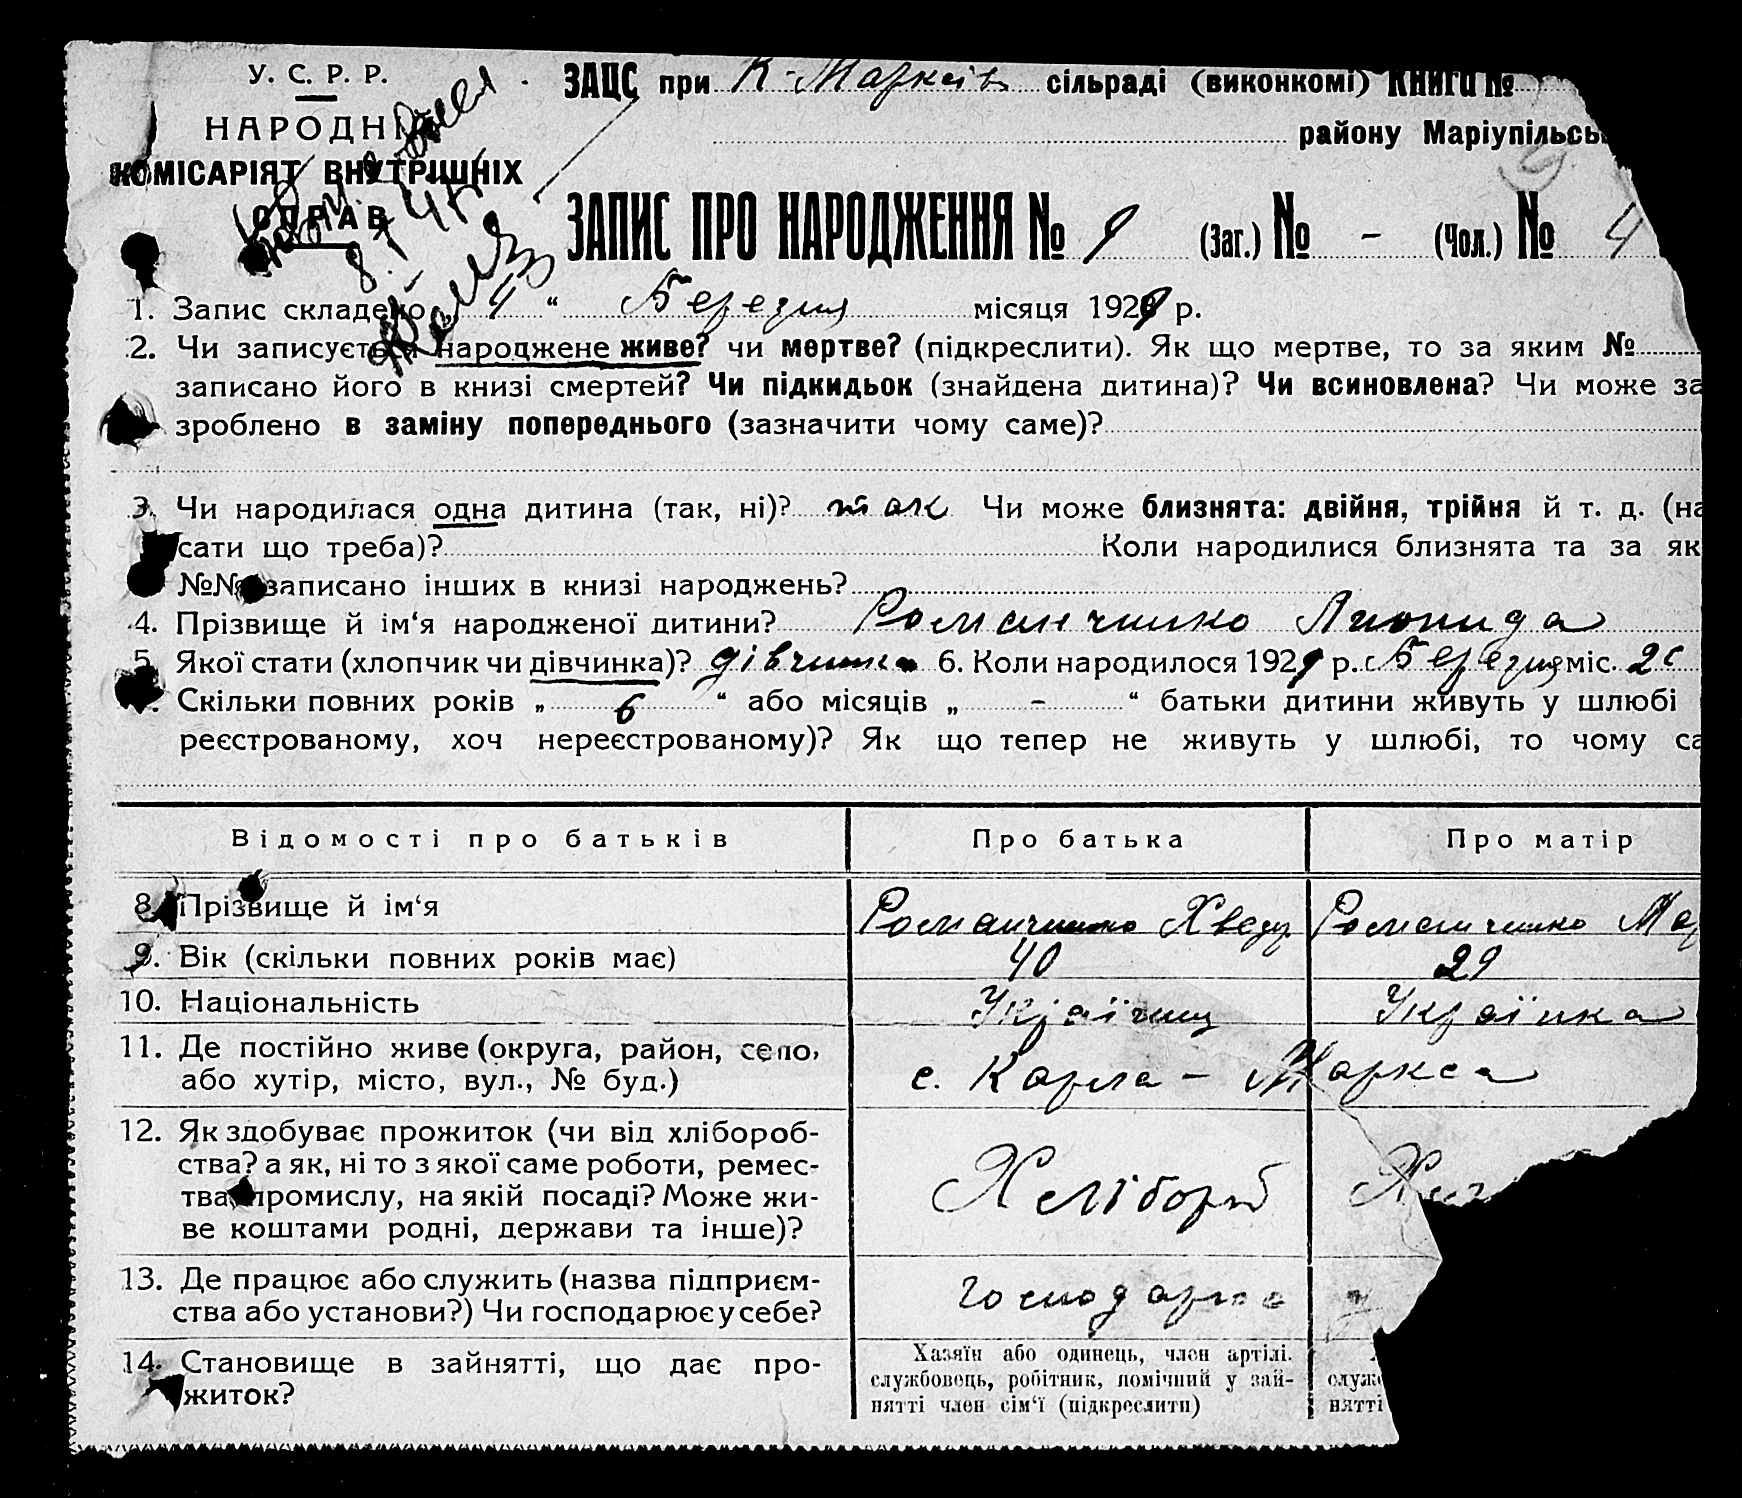 У. С. Р. Р.
НАРОДНІЙ
КОМІСАРІЯТ ВНУТРІШНІХ
СПРАВ
ЗАЦС при К-Марксів сільраді (виконкомі) Книга №
району Маріупільсь
ЗАПИС ПРО НАРОДЖЕННЯ № 9 (Заг.) № - (Чол.) № 4
1. Запис складено „ 4 “ Березня місяця 1929 р.
2. Чи записується народжене живе? чи мертве? (підкреслити). Як що мертве, то за яким №
записано його в книзі смертей? Чи підкидьок (знайдена дитина)? Чи всиновлена? Чи може за
зроблено в заміну попереднього (зазначити чому саме)?
3. Чи народилася одна дитина (так, ні)? так Чи може близнята: двійня, трійня й т. д. (на
сати що треба)? Коли народилися близнята та за як
№№ записано інших в книзі народжень?
4. Прізвище й ім‘я народженої дитини? Романченко
5. Якої стати (хлопчик чи дівчинка)? дівчинка 6. Коли народилося 1929 р. Березня міс.
Скільки повних років „ 6 “ або місяців „ - “ батьки дитини живуть у шлюбі
реєстрованому, хоч нереєстрованому)? Як що тепер не живуть у шлюбі, то чому са
Відомості про батьків Про батька Про матір
8. Прізвище й ім‘я Романченко Хведір Романченко Мар
9. Вік (скільки повних років має) 40 29
10. Національність Українец Українка
11. Де постійно живе (округа, район, село,
або хутір, місто, вул., № буд.) с. Карла-Маркса
12. Як здобуває прожиток (чи від хлібороб-
ства? а як, ні то з якої саме роботи, ремес-
тва, промислу, на якій посаді? Може жи-
ве коштами родні, держави та інше)? Хлібороб
13. Де працює або служить (назва підприєм-
ства або установи?) Чи господарює у себе? господарює
14. Становище в зайнятті, що дає про-
житок?
Хазяїн або одинець, член артілі.
службовець, робітник, помічний у зай-
нятті член сім‘ї (підкреслити)
служ
нятті